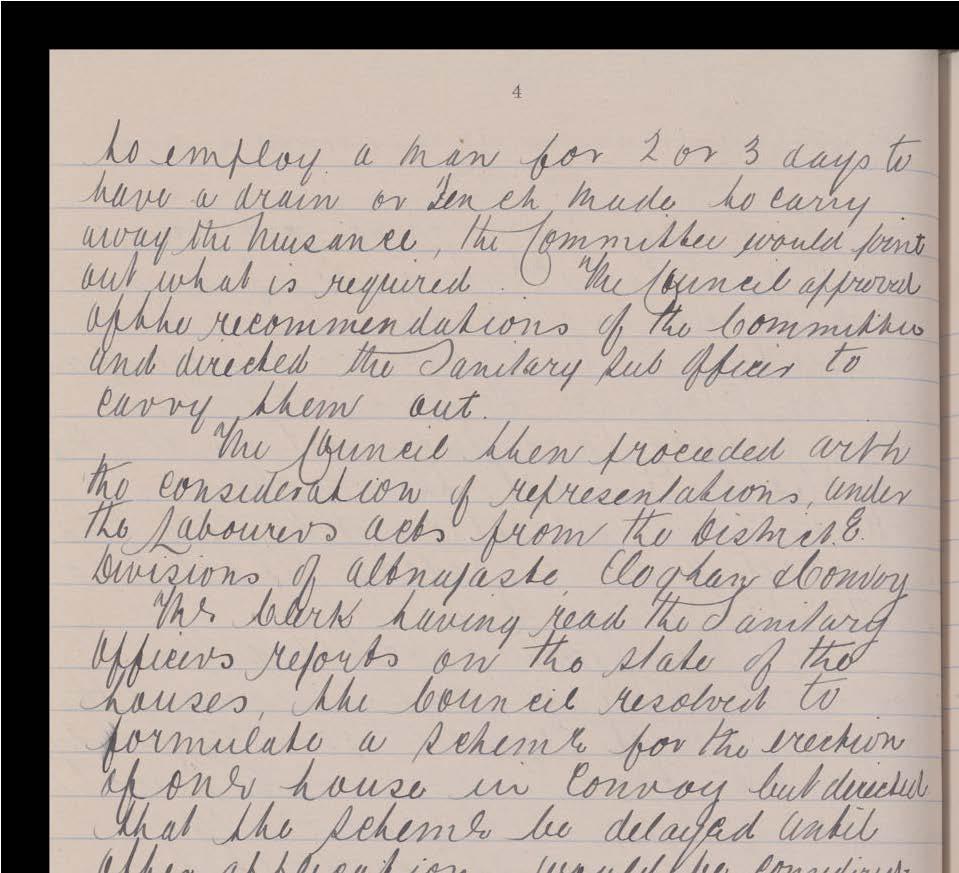 4
to employ a man for 2 or 3 days to
have a drain or made to carry
away the nuisance, the Committee would point
out what is required. The Council approved
of the recommendations of the Committee
and directed the Sanitary Sub Officer to
carry them out.
The Council then proceeded with
the consideration of representations, under
the Labourers acts from the District E.
Divisions of Cloghan & Convoy
The Clerk having read the Sanitary
Officers reports on the state of the
houses, the Council resolved to
formulate a scheme for the erection
of one house in Convoy but directed
that the scheme be delayed until
application would be